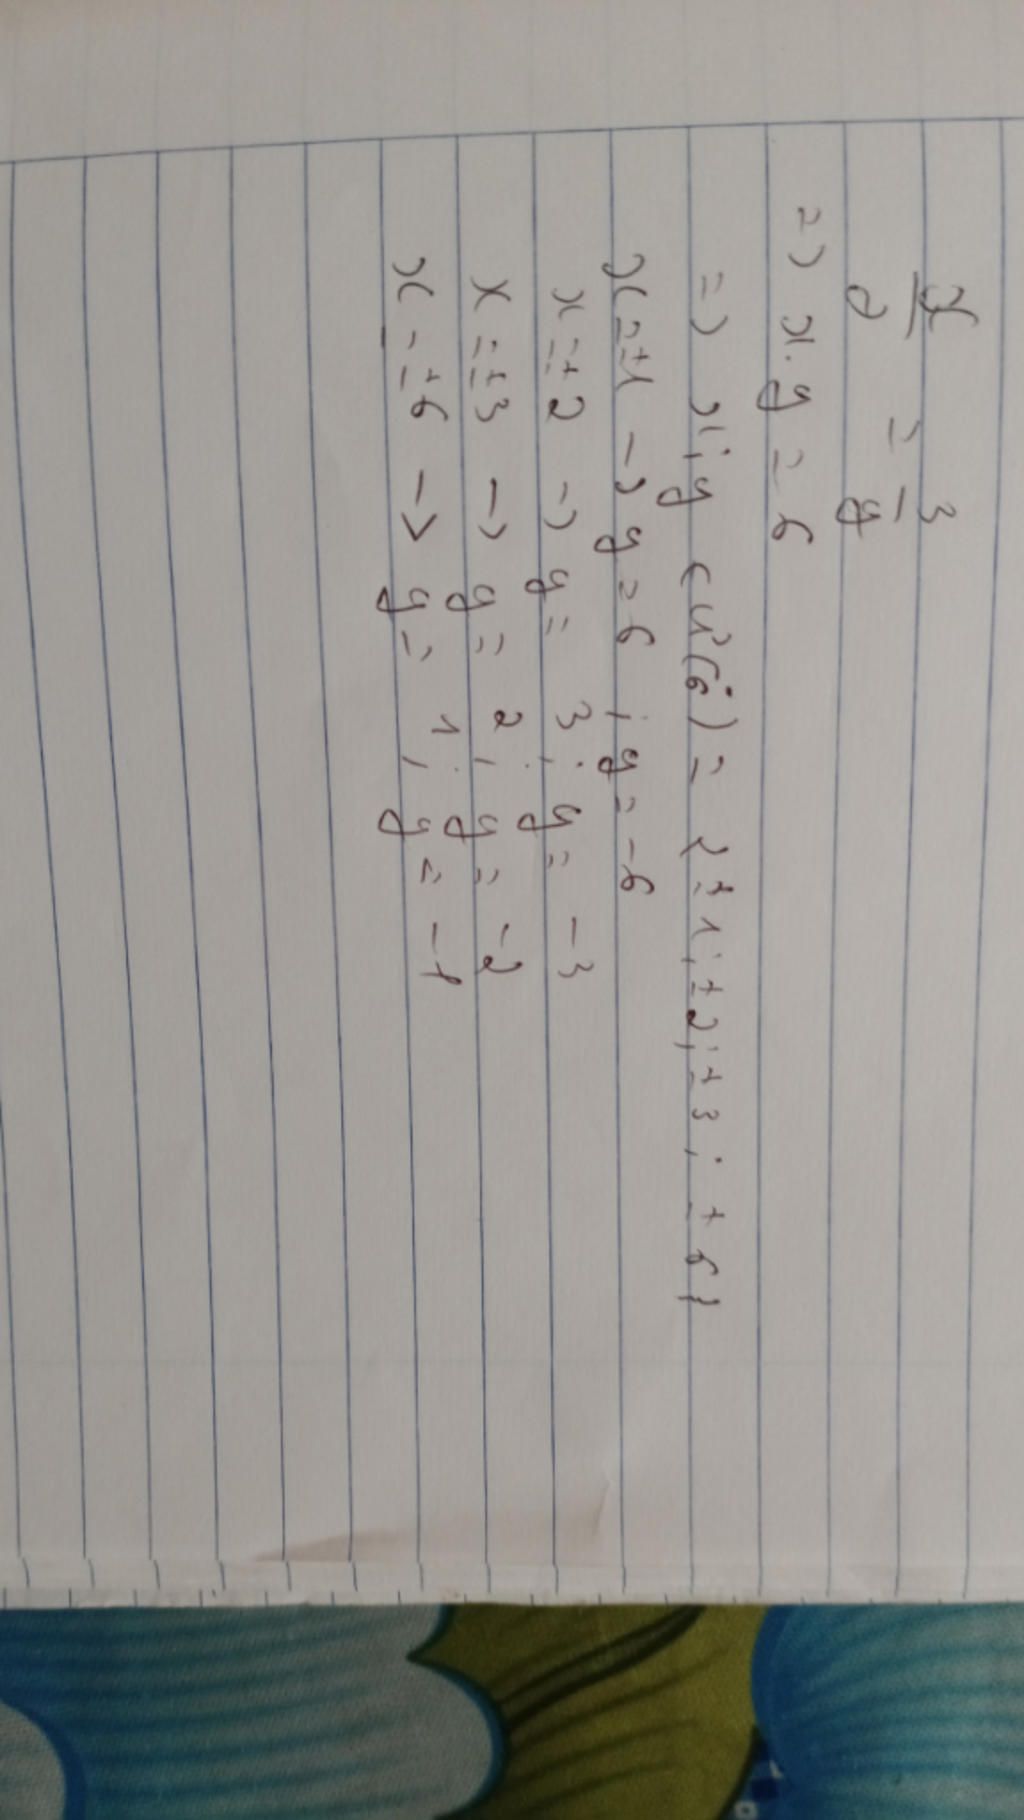 x/2 = 3/y
=> x.y = 6
=> x; y ∈ Ư(6) = {±1; ±2; ±3; ±6}
x = ±1 -> y = 6; y = -6
x = ±2 -> y = 3; y = -3
x = ±3 -> y = 2; y = -2
x = ±6 -> y = 1; y = -1